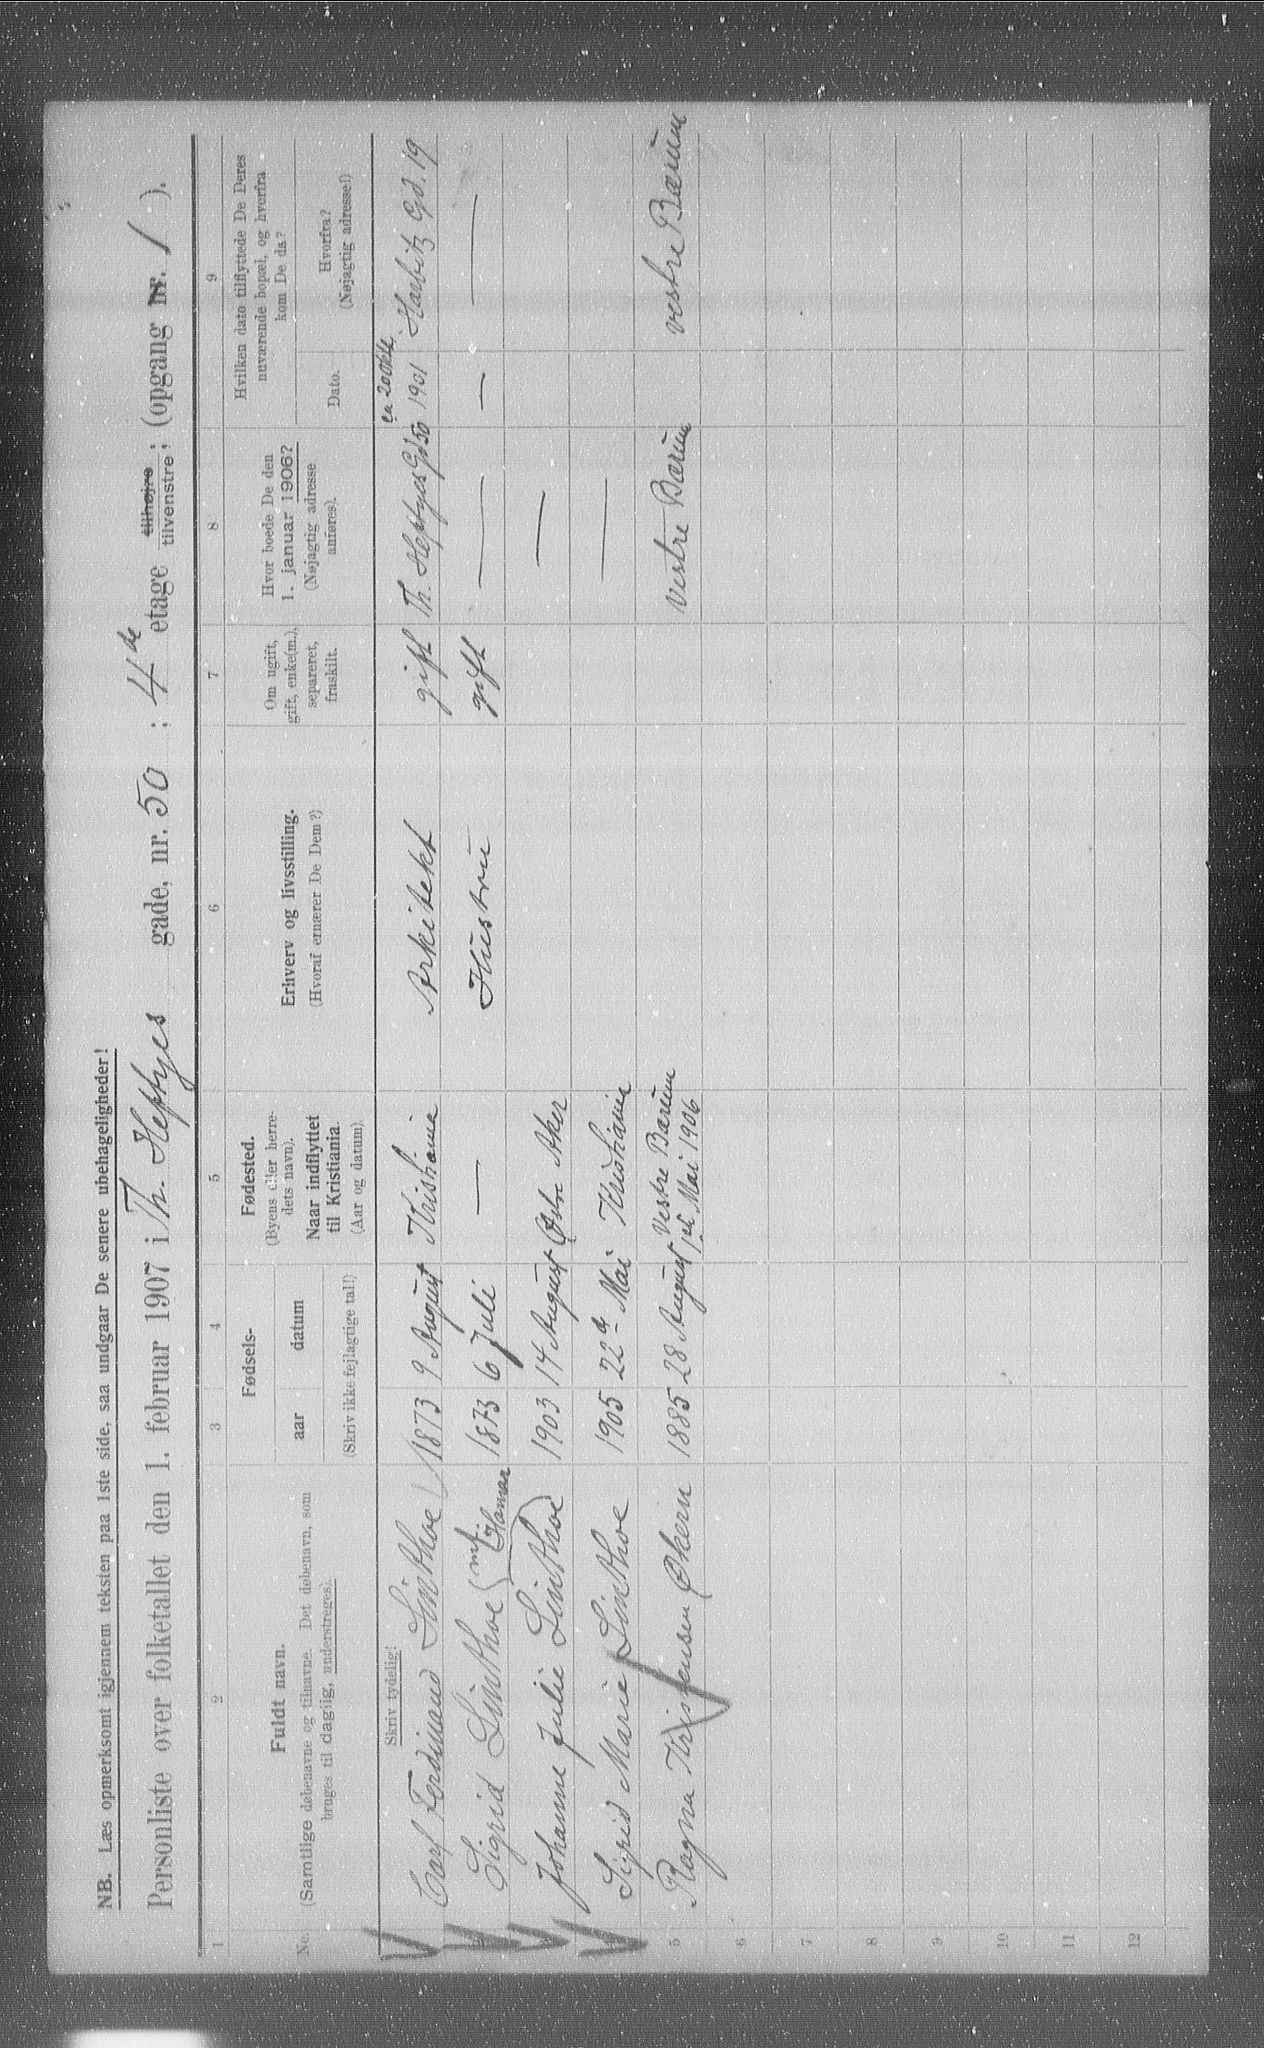 NB. Læs opmerksomt igjennem teksten paa 1ste side, saa undgaar De senere ubehageligheder!
Personliste over folketallet den 1. februar 1907 i Th. Heftyes gade, nr. 50 ; 4de etage tilhøjre tilvenstre ; (opgang nr. 1 ).
1 2 3 4 5 6 7 8 9
No.
Fuldt navn.
(Samtlige døbenavne og tilnavne. Det døbenavn, som
bruges til daglig, understreges).
Fødsels-
aar datum
(Skriv ikke fejlagtige tal!)
Fødested.
(Byens eller herre-
dets navn).
Naar indflyttet
til Kristiania.
(Aar og datum).
Erhverv og livsstilling.
(Hvoraf ernærer De Dem?)
Om ugift,
gift, enke(m.),
separeret,
fraskilt.
Hvor boede De den
1. januar 1906?
(Nøjagtig adresse
anføres).
Hvilken dato tilflyttede De Deres
nuværende bopæl, og hvorfra
kom De da?
Dato.
Hvorfra?
(Nøjagtig adresse!)
Skriv tydelig!
Carl Ferdinand Linthoe 1873 9 August Kristiania Arkitekt gift Th. Heftyes Gd 50 ca 20 Okt. 1901 Harbitz Gd. 19
Sigrid Linthoe 1873 6 Juli — Hustru gift — — —
Johanne Julie Linthoe 1903 14 August Østre Aker —
Sigrid Marie Linthoe 1905 22de Mai Kristiania —
5 Ragna Kristensen Økern 1885 28 August Vestre Bærum Mai 1906 Vestre Bærum vestre Bærum
6
7
8
9
10
11
12